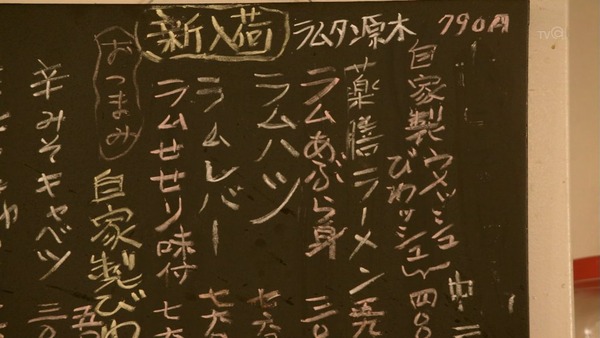 新入荷 ラムタン源木 790円
中
自家製ウメッシュ
びわッシュ 四〇〇
薬膳ラーメン 五九
ラムあぶら身 三〇
ラムハツ 七六
ラムレバー 七六
ラムせせり味付 七六
おつまみ
自家製びわ
辛みそキャベツ 三〇